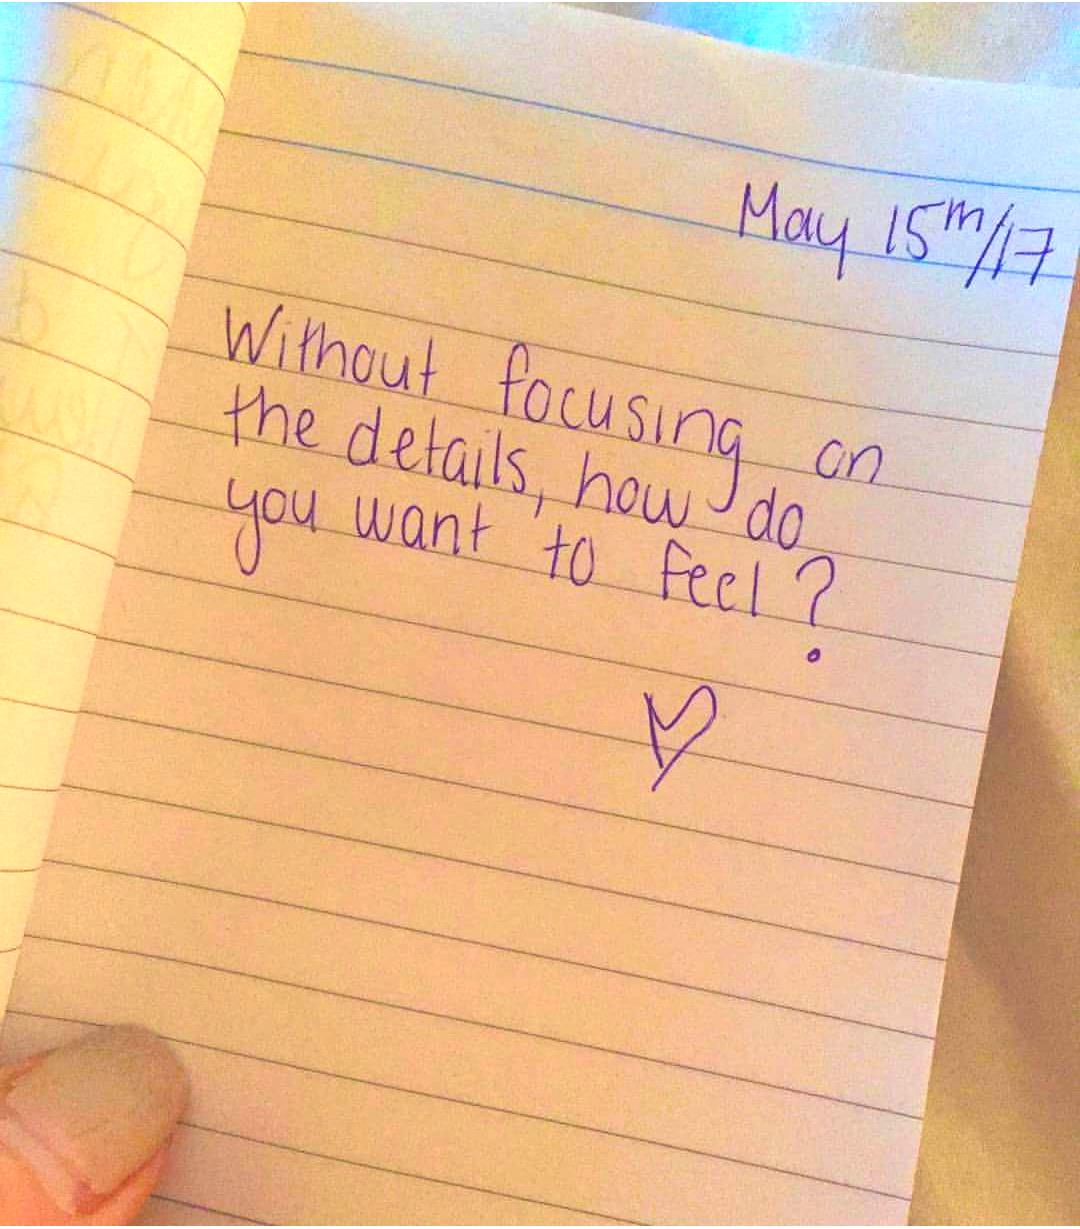 May 15th/17
Without focusing on
the details, how do
you want to feel?